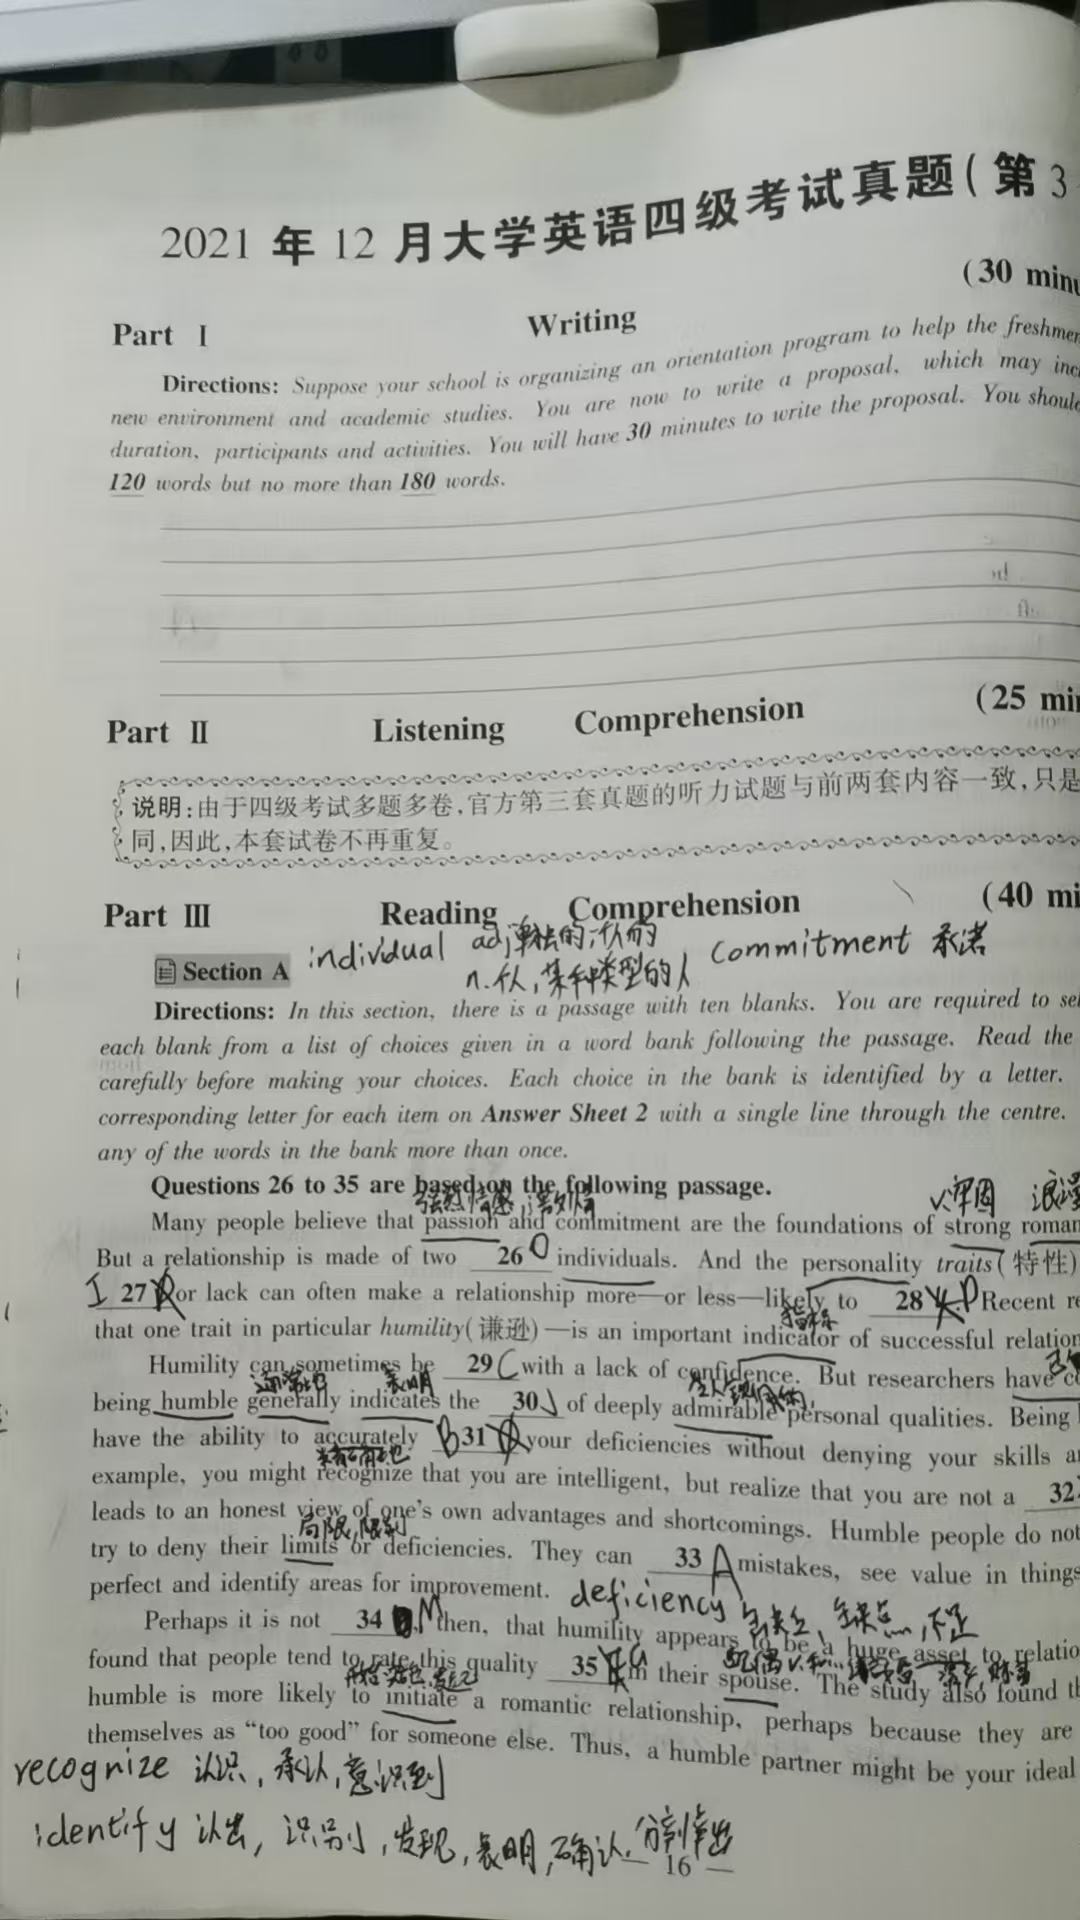 2021年12月大学英语四级考试真题(第3
(30 minu
Part Ⅰ Writing
Directions: Suppose your school is organizing an orientation program to help the freshmen
new environment and academic studies. You are now to write a proposal, which may incl
duration, participants and activities. You will have 30 minutes to write the proposal. You should
120 words but no more than 180 words.
Part Ⅱ Listening Comprehension (25 min
说明:由于四级考试多题多卷,官方第三套真题的听力试题与前两套内容一致,只是
同,因此,本套试卷不再重复。
Part Ⅲ Reading Comprehension (40 mi
individual adj单独的,个人的 commitment 承诺
Section A n.个人,某种类型的人
Directions: In this section, there is a passage with ten blanks. You are required to sel
each blank from a list of choices given in a word bank following the passage. Read the
carefully before making your choices. Each choice in the bank is identified by a letter.
corresponding letter for each item on Answer Sheet 2 with a single line through the centre.
any of the words in the bank more than once.
Questions 26 to 35 are based on the following passage.
牢固 浪漫
Many people believe that passion and commitment are the foundations of strong roman
But a relationship is made of two 26 O individuals. And the personality traits(特性)
I 27 or lack can often make a relationship more—or less—likely to 28 D Recent re
that one trait in particular humility(谦逊)—is an important indicator of successful relation
Humility can sometimes be 29 C with a lack of confidence. But researchers have co
通常地 表明
being humble generally indicates the 30 J of deeply admirable personal qualities. Being
have the ability to accurately B 31 your deficiencies without denying your skills a
example, you might recognize that you are intelligent, but realize that you are not a 32
leads to an honest view of one's own advantages and shortcomings. Humble people do not
局限,限制
try to deny their limits or deficiencies. They can 33 A mistakes, see value in things
perfect and identify areas for improvement. deficiency 缺乏,缺点,不足
Perhaps it is not 34 M then, that humility appears to be a huge asset to relatio
found that people tend to rate this quality 35 G in their spouse. The study also found th
humble is more likely to initiate a romantic relationship, perhaps because they are
themselves as "too good" for someone else. Thus, a humble partner might be your ideal
recognize 认识,承认,意识到
identify 认出,识别,发现,表明,确认,分辨出
— 16 —